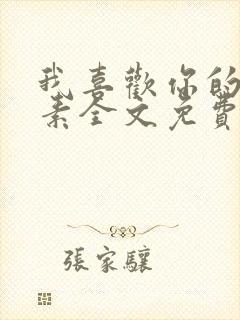 我喜歡你的
素全文免費
張家驤